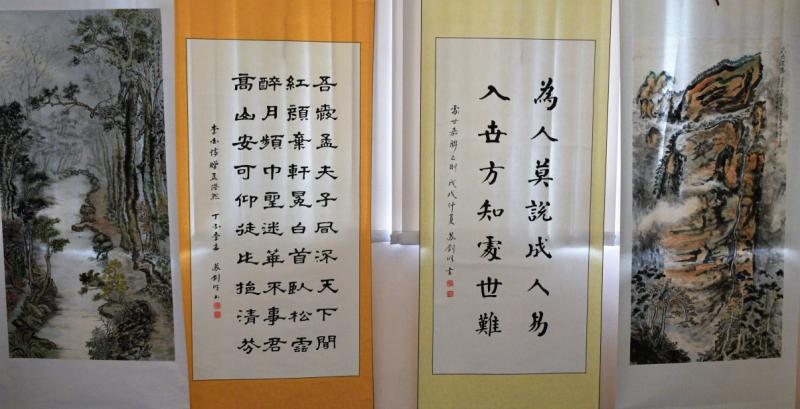 吾愛孟夫子風流天下聞
紅顏棄軒冕白首臥松雲
醉月頻中聖迷華不事君
高山安可仰徒此挹清芬
李白詩贈孟浩然 丁酉
為人莫說成人易
入世方知處世難
處世 之則 戊戌仲夏 書